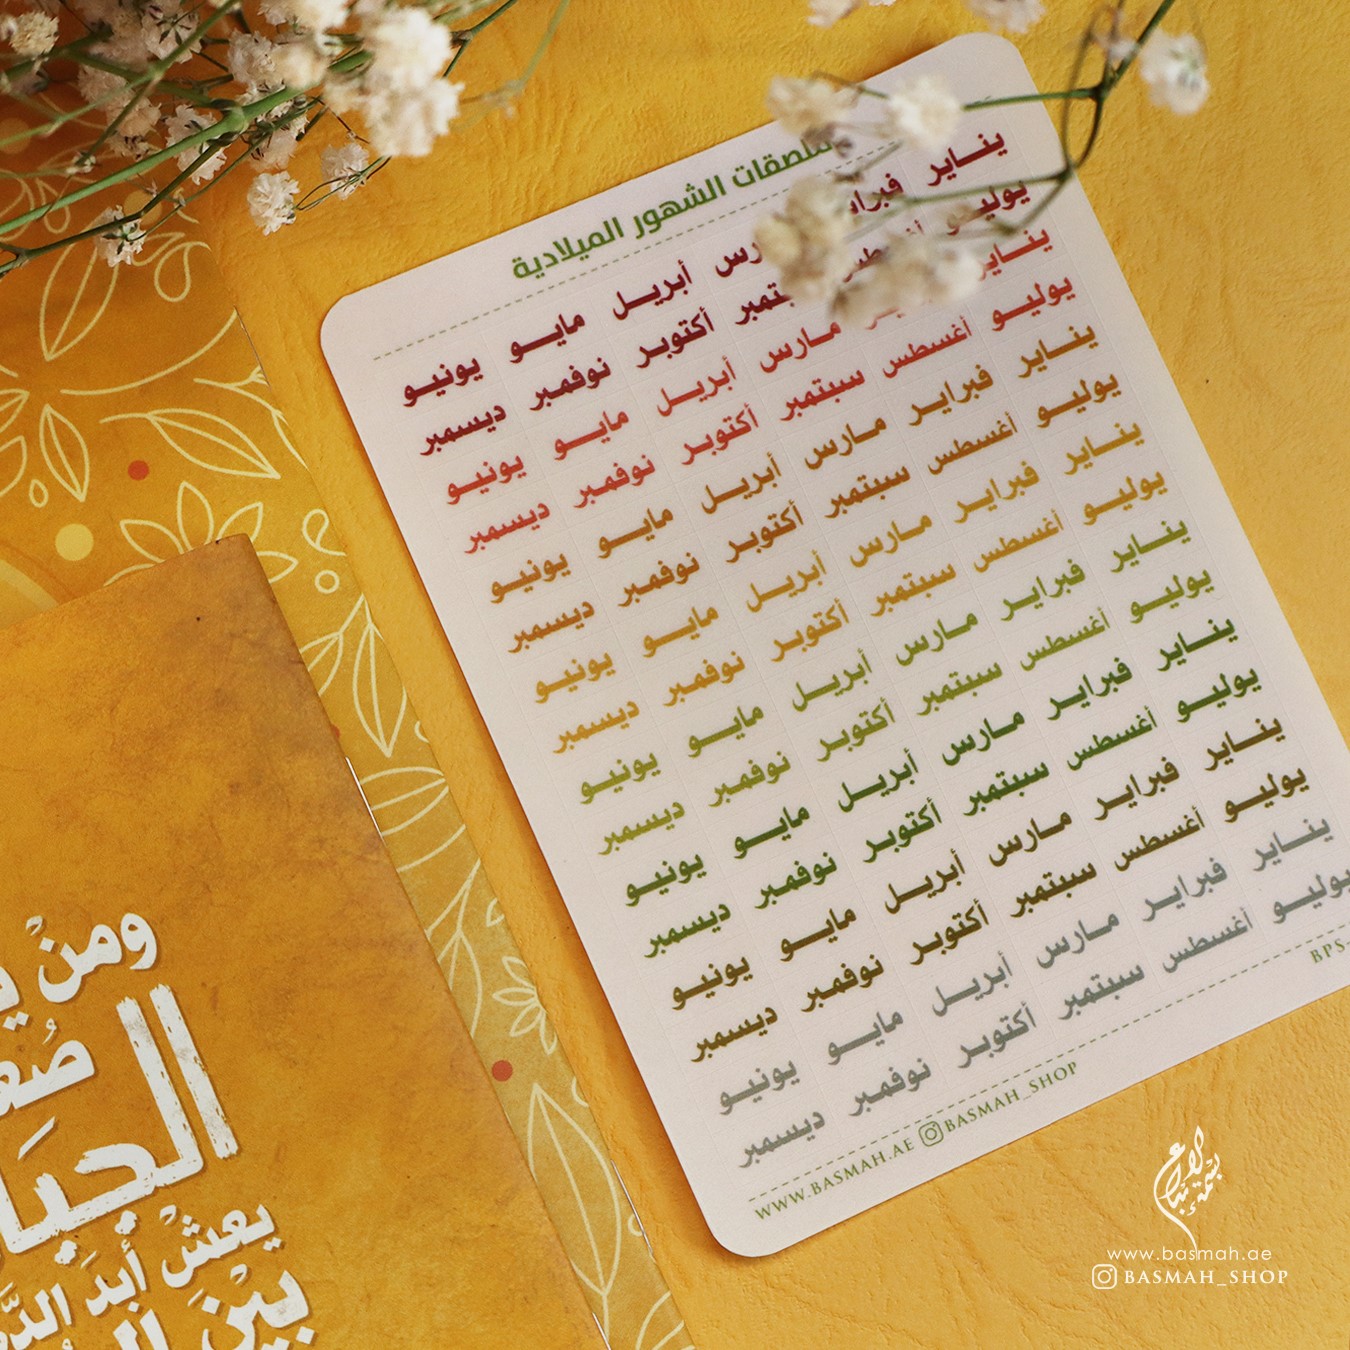 ملصقات الشهور الميلادية
يناير فبراير مارس أبريل مايو يونيو
يوليو أغسطس سبتمبر أكتوبر نوفمبر ديسمبر
يناير مارس أبريل مايو يونيو
يوليو أغسطس سبتمبر أكتوبر نوفمبر ديسمبر
يناير فبراير مارس أبريل مايو يونيو
يوليو أغسطس سبتمبر أكتوبر نوفمبر ديسمبر
يناير فبراير مارس أبريل مايو يونيو
يوليو أغسطس سبتمبر أكتوبر نوفمبر ديسمبر
يناير فبراير مارس أبريل مايو يونيو
يوليو أغسطس سبتمبر أكتوبر نوفمبر ديسمبر
يناير فبراير مارس أبريل مايو يونيو
يوليو أغسطس سبتمبر أكتوبر نوفمبر ديسمبر
يناير فبراير مارس أبريل مايو يونيو
يوليو أغسطس سبتمبر أكتوبر نوفمبر ديسمبر
يناير فبراير مارس أبريل مايو يونيو
يوليو أغسطس سبتمبر أكتوبر نوفمبر ديسمبر
WWW.BASMAH.AE BASMAH_SHOP BPS
ومنْ
يعشْ أبدَ
بيْن
www.basmah.ae
BASMAH_SHOP